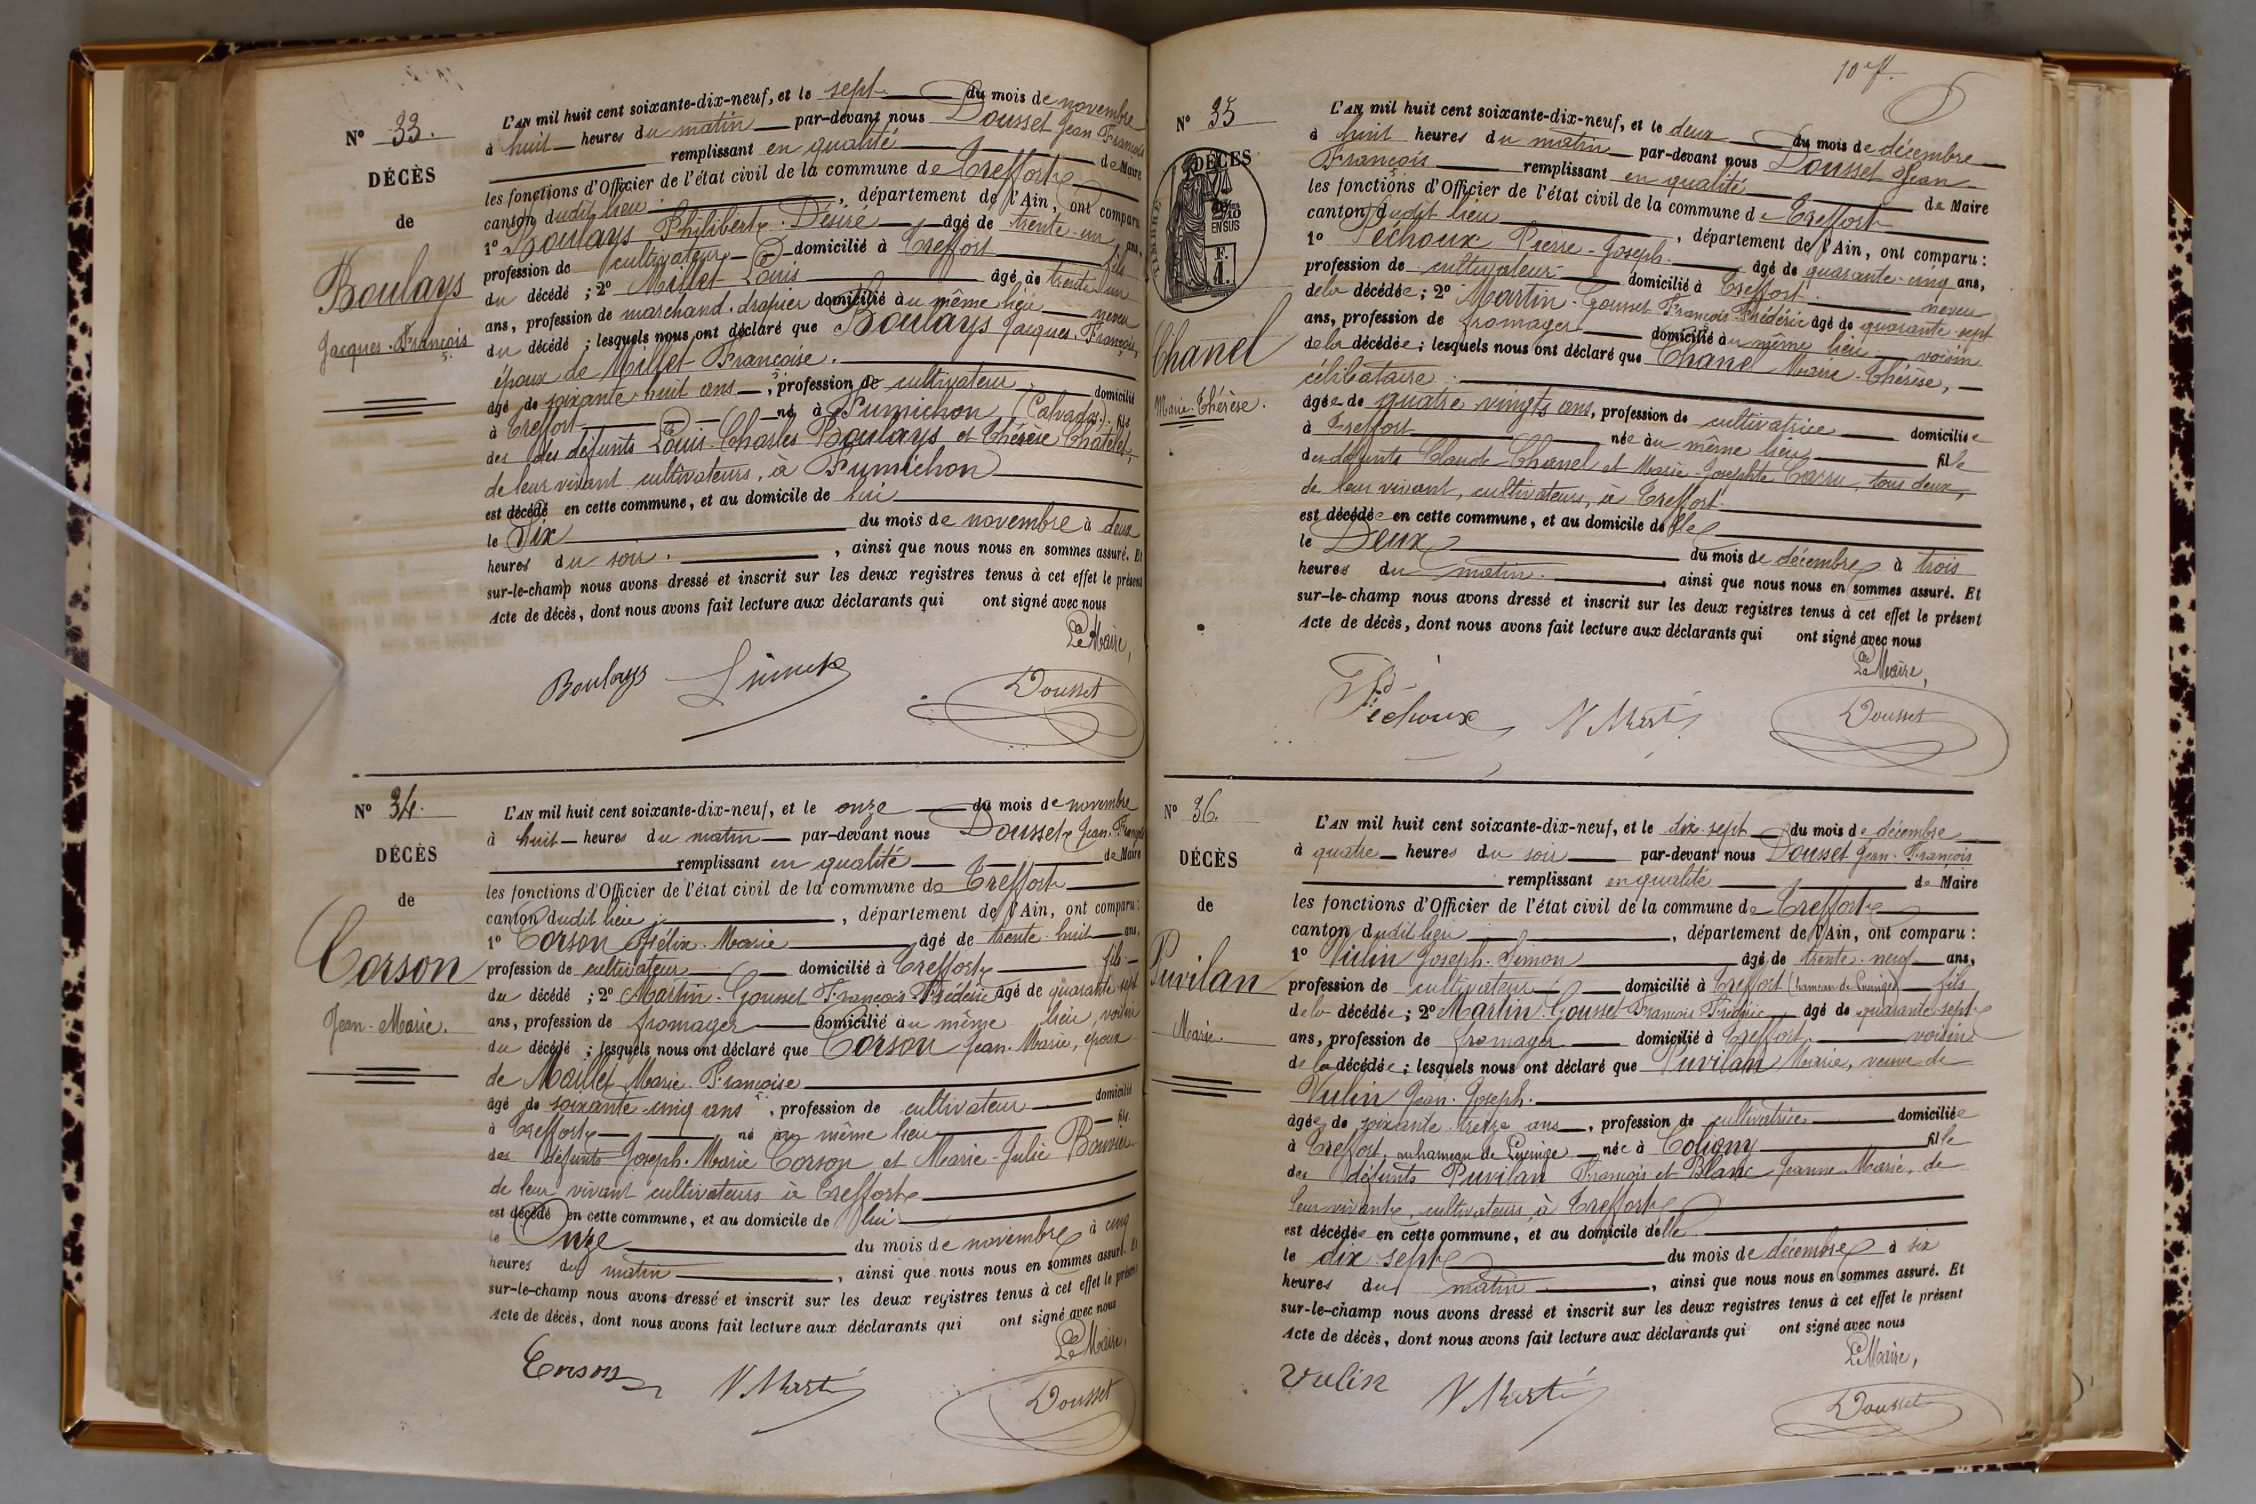 N° 33.
DÉCÈS
de
Boulays
Jacques-François
L'AN mil huit cent soixante-dix-neuf, et le sept du mois de novembre
à huit heures du matin par-devant nous Dousset Jean François
remplissant en qualité de Maire
les fonctions d'Officier de l'état civil de la commune de Treffort
canton dudit lieu, département de l'Ain, ont comparu
1° Boulays Philibert-Désiré âgé de trente-un ans,
profession de cultivateur domicilié à Treffort fils
du décédé ; 2° Millet Louis âgé de trente-un
ans, profession de marchand-drapier domicilié au même lieu neveu
du décédé ; lesquels nous ont déclaré que Boulays Jacques-François,
époux de Millet Françoise.
âgé de soixante-huit ans, profession de cultivateur domicilié
à Treffort né à Fumichon (Calvados). fils
des des défunts Louis-Charles Boulays et Thérèse Chatelet,
de leur vivant cultivateurs, à Fumichon
est décédé en cette commune, et au domicile de lui
le Six du mois de novembre à deux
heures du soir., ainsi que nous nous en sommes assuré. Et
sur-le-champ nous avons dressé et inscrit sur les deux registres tenus à cet effet le présent
Acte de décès, dont nous avons fait lecture aux déclarants qui ont signé avec nous
Le Maire,
Boulays Dousset
N° 34.
DÉCÈS
de
Corson
Jean-Marie.
L'AN mil huit cent soixante-dix-neuf, et le onze du mois de novembre
à huit heures du matin par-devant nous Dousset Jean-François
remplissant en qualité de Maire
les fonctions d'Officier de l'état civil de la commune de Treffort
canton dudit lieu, département de l'Ain, ont comparu :
1° Corson Félix-Marie âgé de trente-huit ans,
profession de cultivateur domicilié à Treffort fils
du décédé ; 2° Martin-Gousset François-Frédéric âgé de quarante-sept
ans, profession de fromager domicilié au même lieu, voisin
du décédé ; lesquels nous ont déclaré que Corson Jean-Marie, époux
de Maillet Marie-Françoise
âgé de soixante-cinq ans, profession de cultivateur domicilié
à Treffort né au même lieu fils
des défunts Joseph-Marie Corson et Marie-Julie Bouvier
de leur vivant cultivateurs à Treffort
est décédé en cette commune, et au domicile de lui
le Onze du mois de novembre à cinq
heures du matin, ainsi que nous nous en sommes assuré. Et
sur-le-champ nous avons dressé et inscrit sur les deux registres tenus à cet effet le présent
Acte de décès, dont nous avons fait lecture aux déclarants qui ont signé avec nous
Le Maire,
Corson Dousset
N° 35
DÉCÈS
TIMBRE
2/10
EN SUS
F.
1.
Chanel
Marie-Thérèse.
L'AN mil huit cent soixante-dix-neuf, et le deux du mois de décembre
à huit heures du matin par-devant nous Dousset Jean-
François remplissant en qualité de Maire
les fonctions d'Officier de l'état civil de la commune de Treffort
canton dudit lieu, département de l'Ain, ont comparu :
1° Péchoux Pierre-Joseph. âgé de quarante-cinq ans,
profession de cultivateur domicilié à Treffort. neveu
de la décédée ; 2° Martin-Gousset François-Frédéric âgé de quarante-sept
ans, profession de fromager domicilié au même lieu voisin
de la décédée ; lesquels nous ont déclaré que Chanel Marie-Thérèse,
célibataire.
âgée de quatre-vingts ans, profession de cultivatrice domiciliée
à Treffort née au même lieu fille
des défunts Claude Chanel et Marie-Josephte Carru, tous deux,
de leur vivant, cultivateurs, à Treffort.
est décédée en cette commune, et au domicile d'elle
le Deux du mois de décembre à trois
heures du matin., ainsi que nous nous en sommes assuré. Et
sur-le-champ nous avons dressé et inscrit sur les deux registres tenus à cet effet le présent
Acte de décès, dont nous avons fait lecture aux déclarants qui ont signé avec nous
Le Maire,
Péchoux Dousset
N° 36.
DÉCÈS
de
Puvilan
Marie.
L'AN mil huit cent soixante-dix-neuf, et le dix-sept du mois de décembre
à quatre heures du soir par-devant nous Dousset Jean-François
remplissant en qualité de Maire
les fonctions d'Officier de l'état civil de la commune de Treffort
canton dudit lieu, département de l'Ain, ont comparu :
1° Vulin Joseph-Simon âgé de trente-neuf ans,
profession de cultivateur domicilié à Treffort (hameau de) fils
de la décédée ; 2° Martin-Gousset François-Frédéric âgé de quarante-sept
ans, profession de fromager domicilié à Treffort, voisin
de la décédée ; lesquels nous ont déclaré que Puvilan Marie, veuve de
Vulin Jean-Joseph.
âgée de soixante-treize ans, profession de cultivatrice domiciliée
à Treffort, au hameau de née à Coligny fille
des défunts Puvilan François et Blanc Jeanne-Marie, de
leur vivant, cultivateurs, à Treffort
est décédée en cette commune, et au domicile d'elle
le dix-sept du mois de décembre à six
heures du matin, ainsi que nous nous en sommes assuré. Et
sur-le-champ nous avons dressé et inscrit sur les deux registres tenus à cet effet le présent
Acte de décès, dont nous avons fait lecture aux déclarants qui ont signé avec nous
Le Maire,
Vulin Dousset